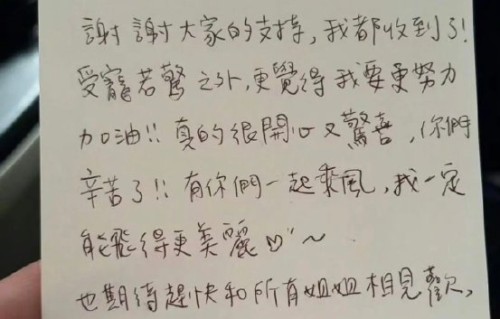 謝謝大家的支持，我都收到了！
受寵若驚之外，更覺得我要更努力
加油!! 真的很開心又驚喜，你們
辛苦了!! 有你們一起乘風，我一定
能飛得更美麗♡~
也期待趕快和所有姐姐相見歡，